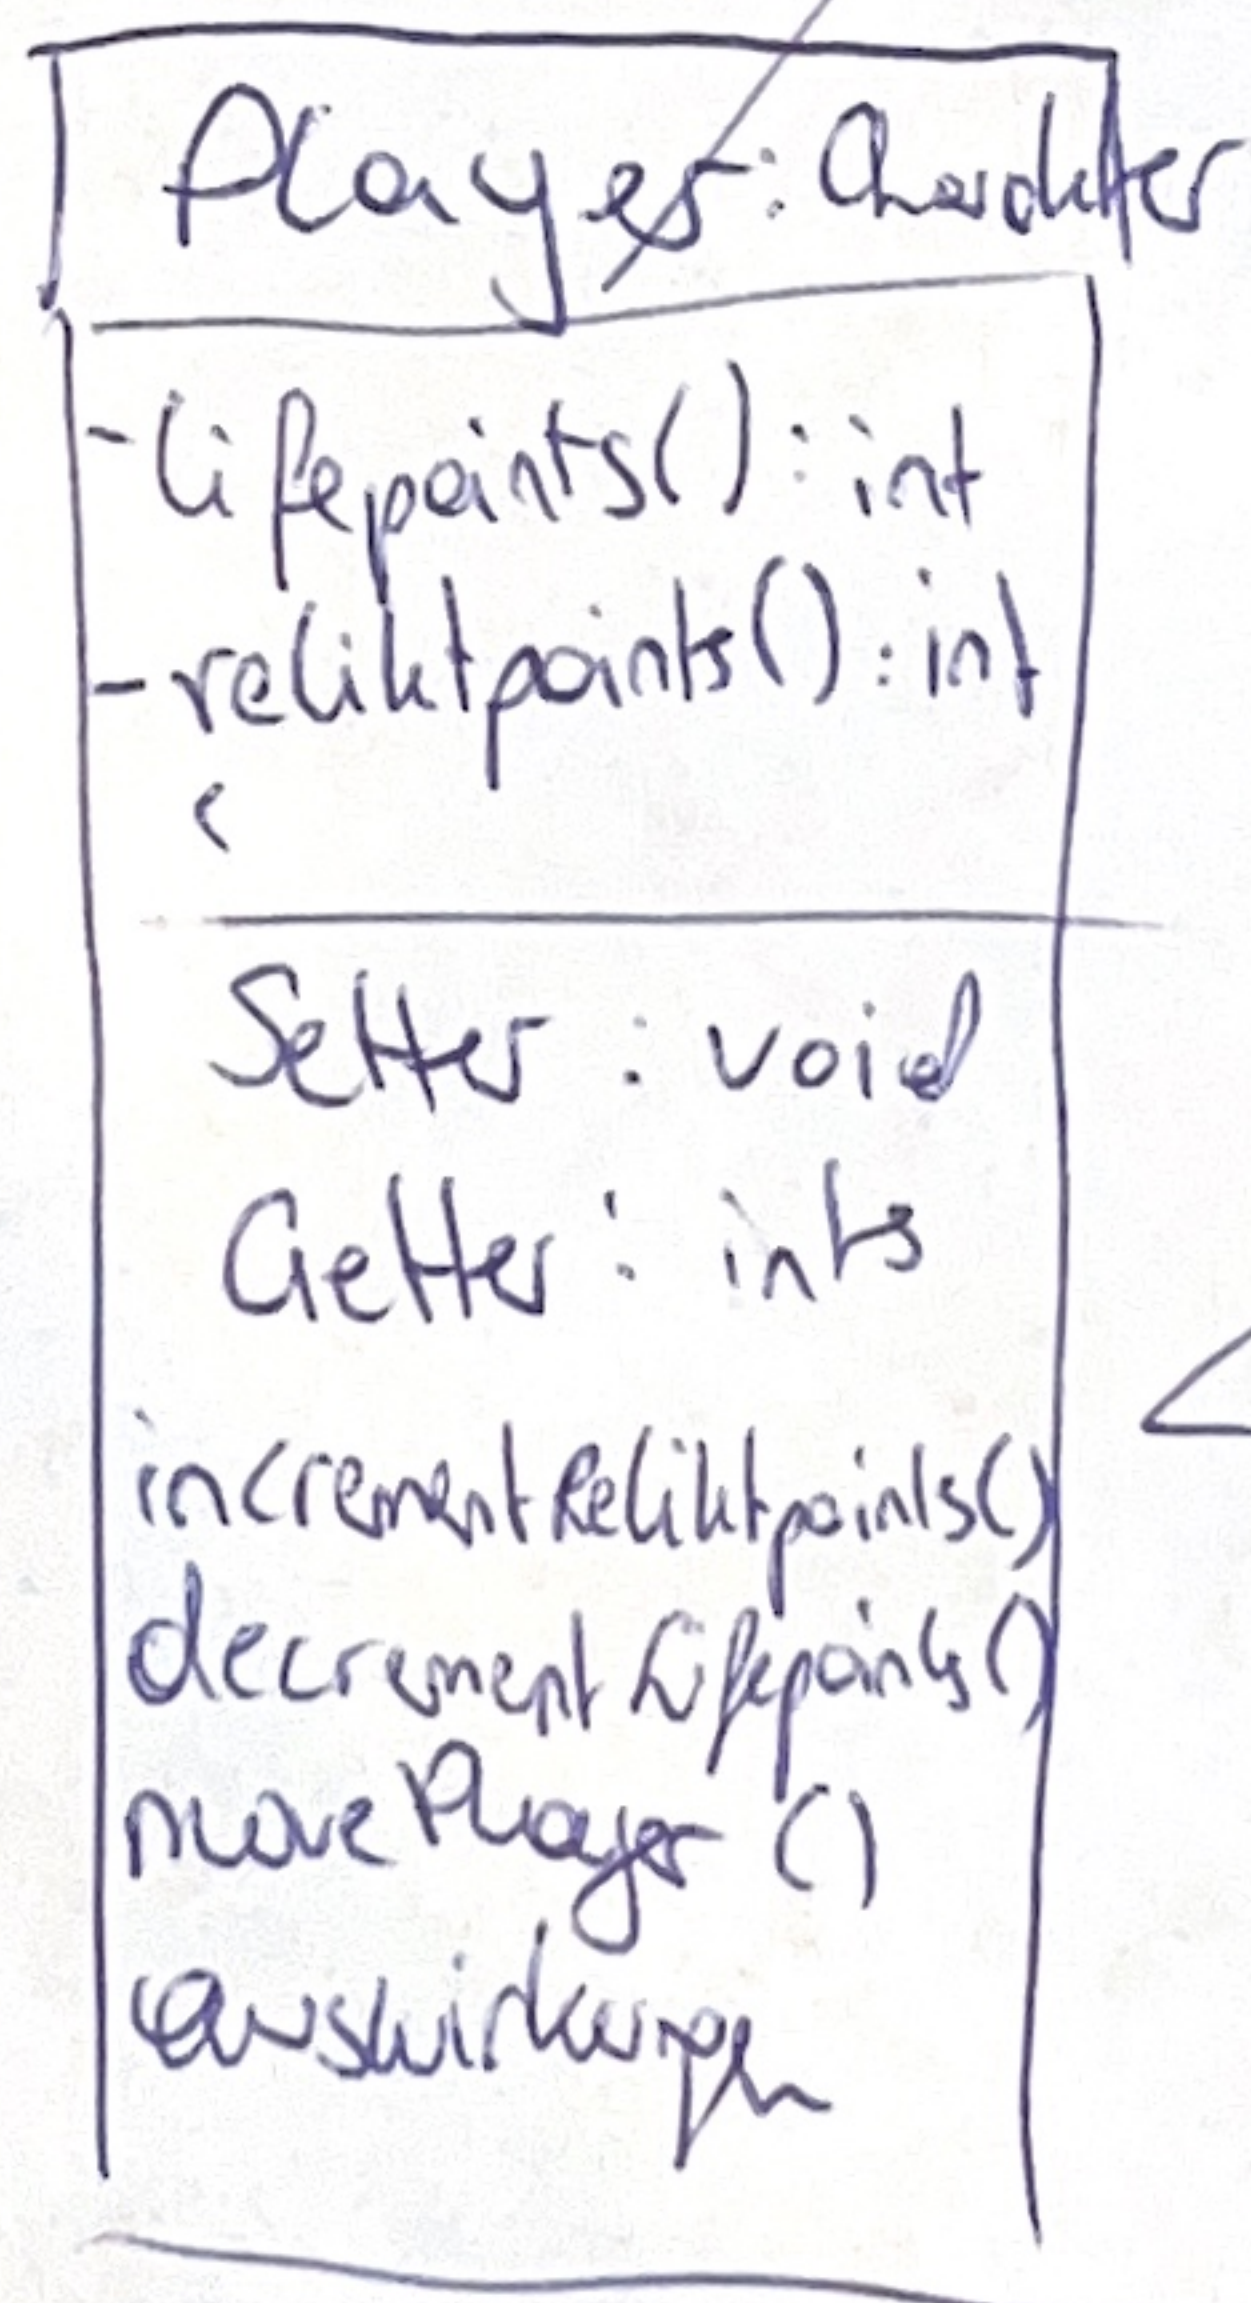 Player : Charakter
- lifepoints() : int
- reliktpoints() : int
Setter : void
Getter : ints
incrementReliktpoints()
decrementLifepoints()
movePlayer ()
auswirkungen